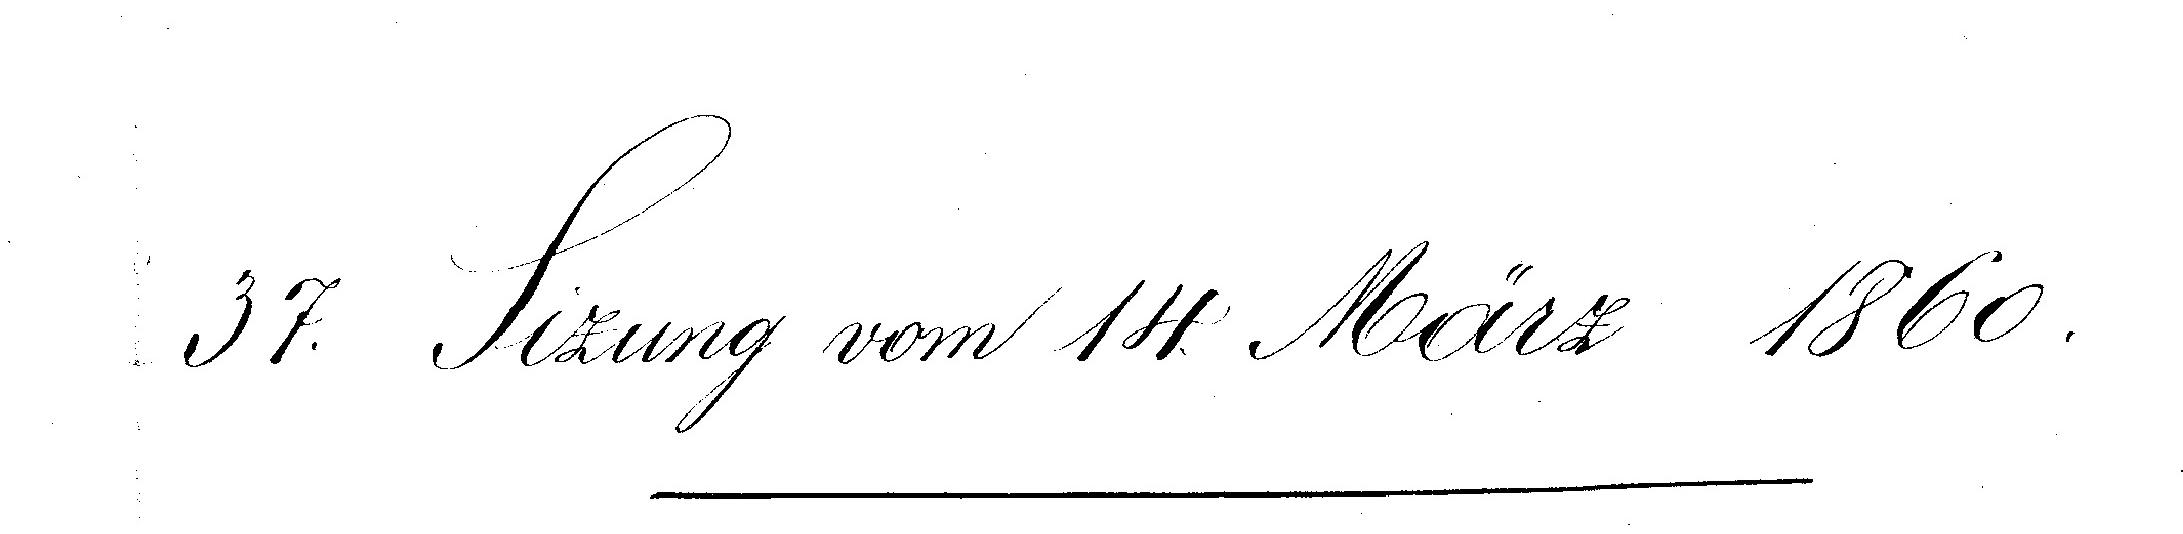 37. Sizung vom 14. März 1860.